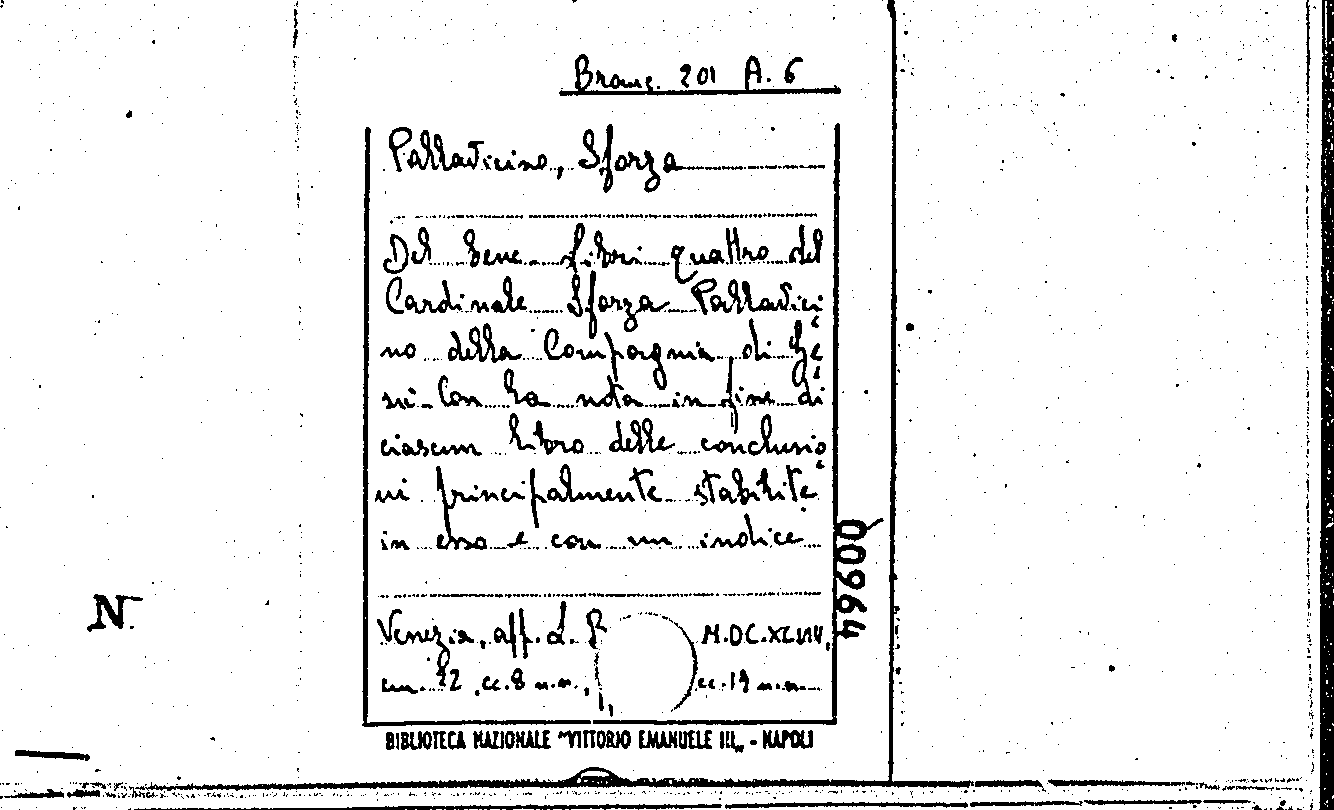 Branc. 201 A. 6
Pallavicino, Sforza
Del bene. Libri quattro del
Cardinale Sforza Pallavici
no della Compagnia di Ge
sù. Con la nota in fine di
ciascun libro delle conclusio
ni principalmente stabilite
in esso e con un indice
Venezia, app. L. P
cm. 22, cc. 8 n.n.,
cc. 19 n.n.
00964
N.
BIBLIOTECA NAZIONALE "VITTORIO EMANUELE III„ - NAPOLI